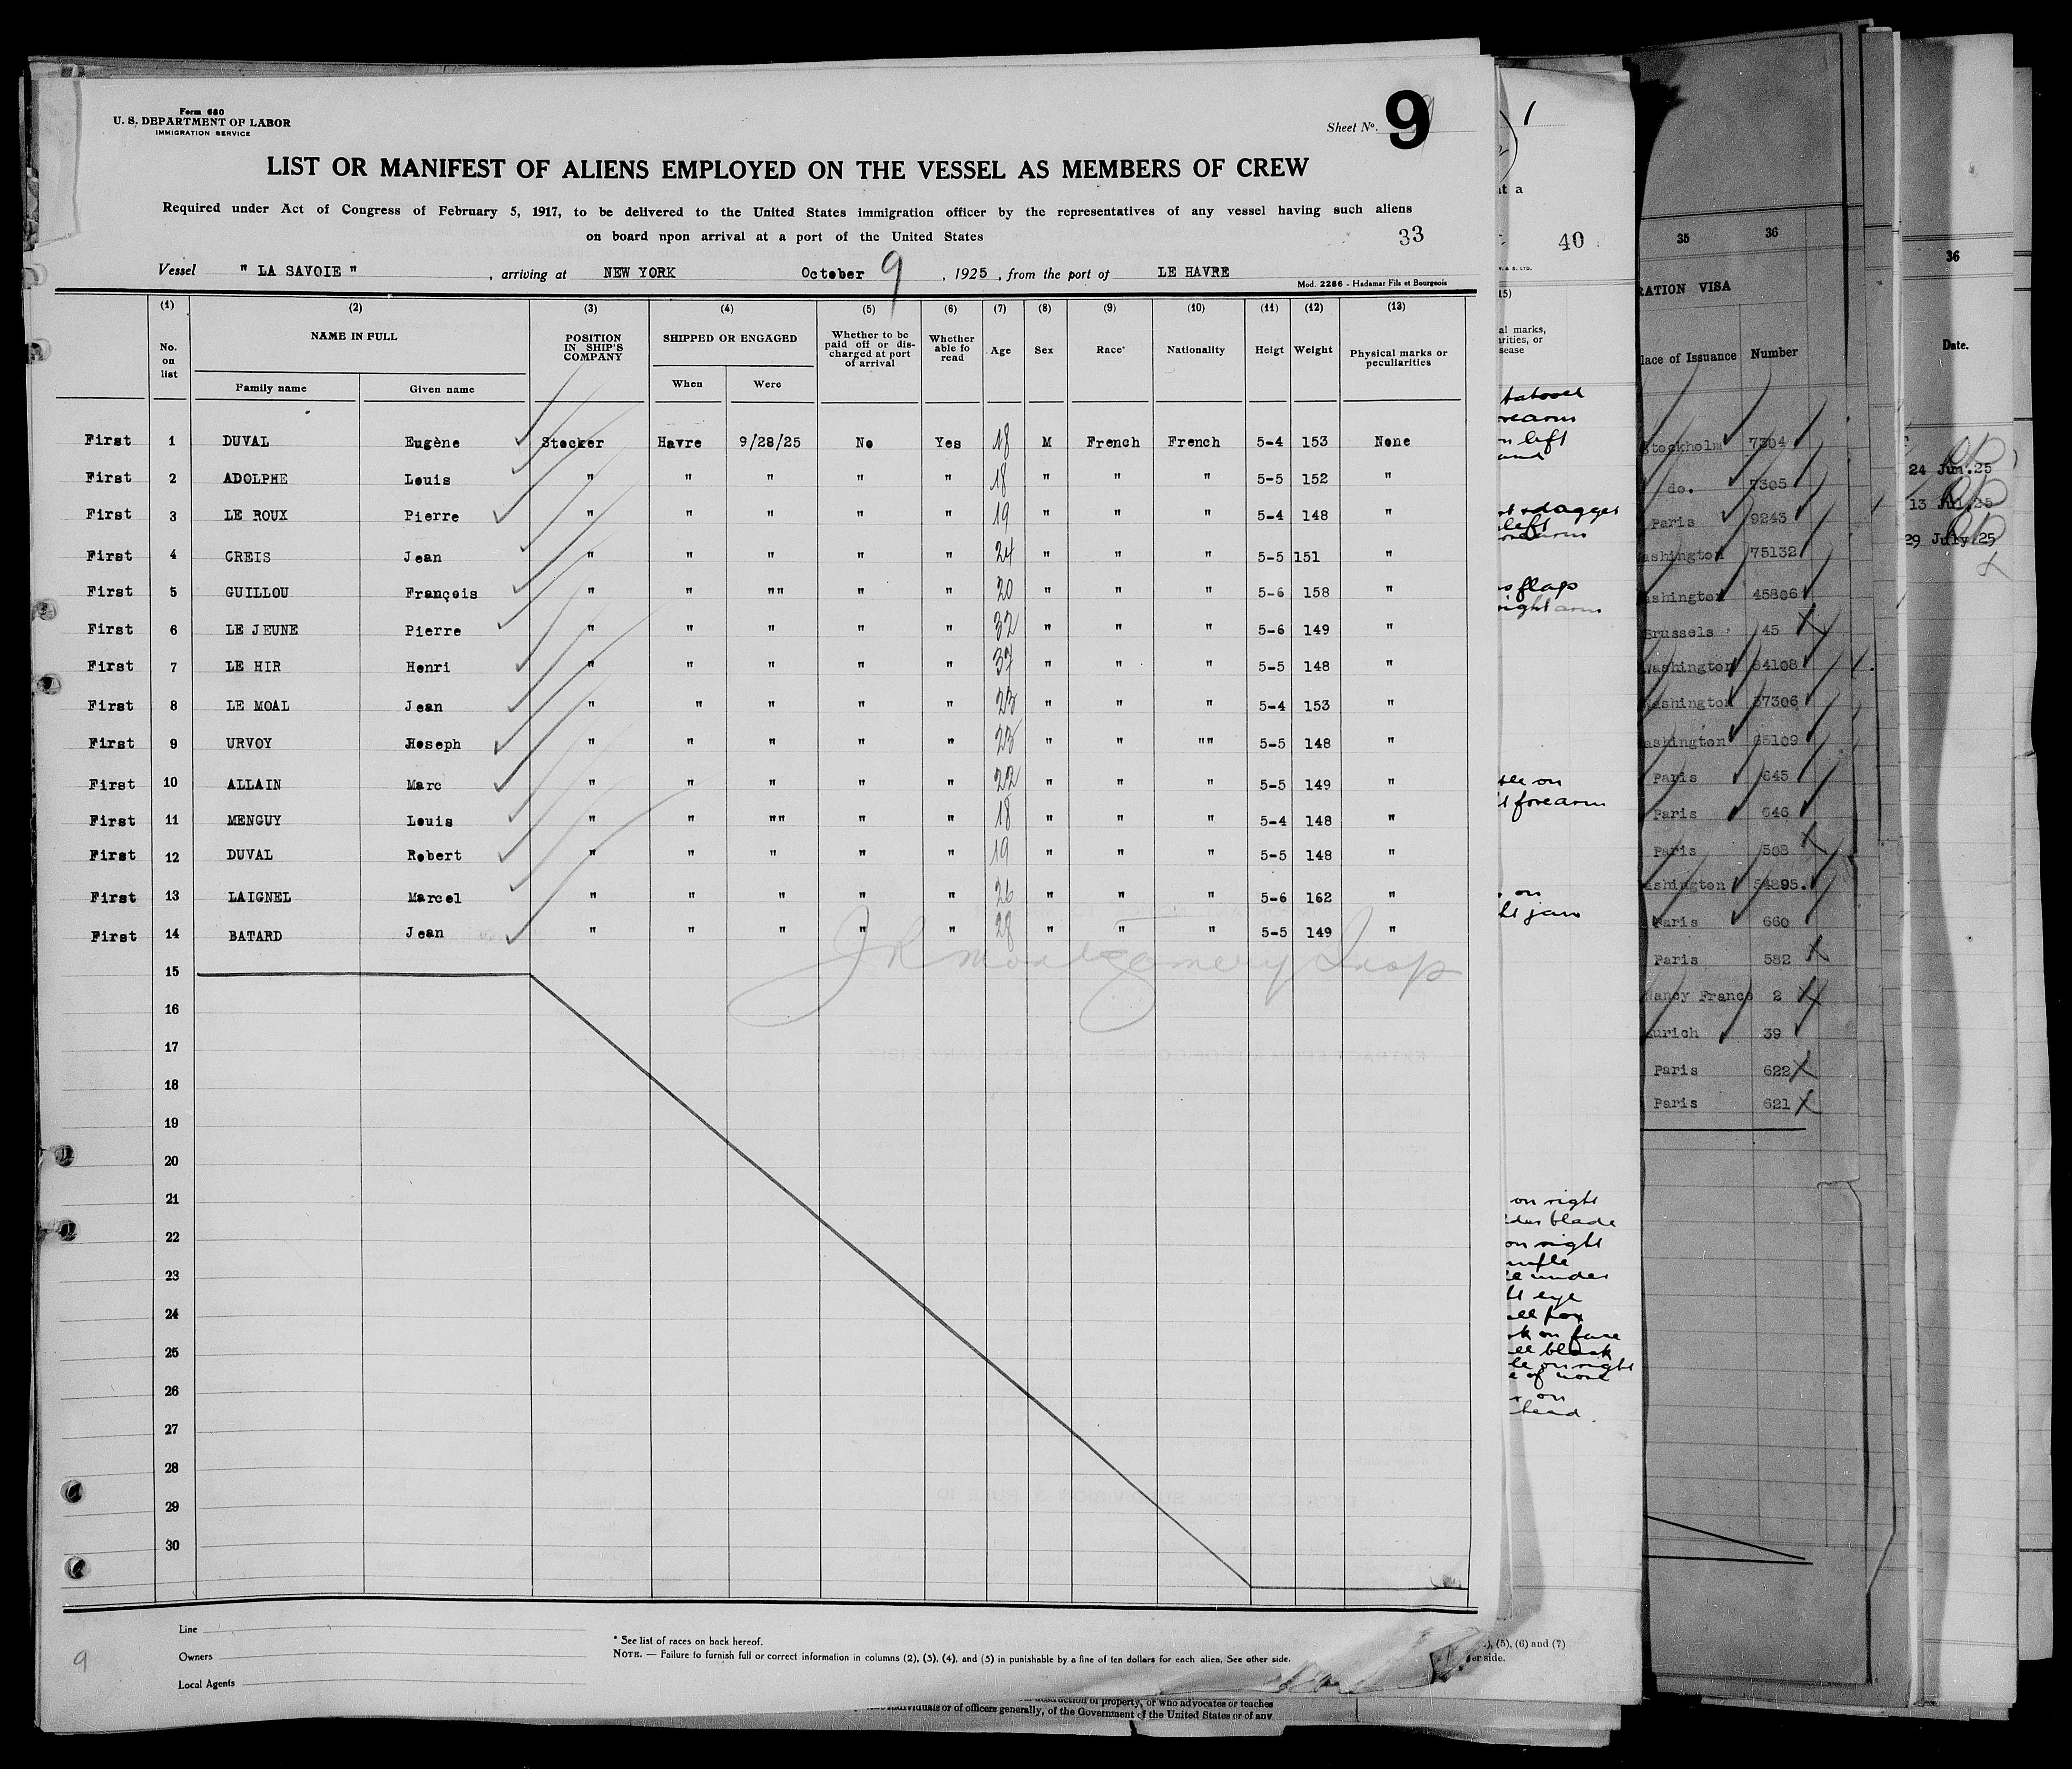 Form 680
U. S. DEPARTMENT OF LABOR
IMMIGRATION SERVICE
Sheet No. 9
LIST OR MANIFEST OF ALIENS EMPLOYED ON THE VESSEL AS MEMBERS OF CREW
Required under Act of Congress of February 5, 1917, to be delivered to the United States immigration officer by the representatives of any vessel having such aliens
on board npon arrival at a port of the United States
33
Vessel " LA SAVOIE " , arriving at NEW YORK October 9 , 1925 , from the port of LE HAVRE
Mod. 2286 - Hadamar Fils et Bourgeois
(1) (2) (3) (4) (5) (6) (7) (8) (9) (10) (11) (12) (13)
No. on list NAME IN FULL Family name Given name POSITION IN SHIP'S COMPANY SHIPPED OR ENGAGED When Were Whether to be paid off or discharged at port of arrival Whether able fo read Age Sex Race* Nationality Heigt Weight Physical marks or peculiarities
First 1 DUVAL Eugène Stocker Havre 9/28/25 No Yes 18 M French French 5-4 153 None
First 2 ADOLPHE Louis " " " " " 18 " " " 5-5 152 "
First 3 LE ROUX Pierre " " " " " 19 " " " 5-4 148 "
First 4 GREIS Jean " " " " " 24 " " " 5-5 151 "
First 5 GUILLOU François " " "" " " 20 " " " 5-6 158 "
First 6 LE JEUNE Pierre " " " " " 32 " " " 5-6 149 "
First 7 LE HIR Henri " " " " " 37 " " " 5-5 148 "
First 8 LE MOAL Jean " " " " " 23 " " " 5-4 153 "
First 9 URVOY Hoseph " " " " " 23 " " "" 5-5 148 "
First 10 ALLAIN Marc " " " " " 22 " " " 5-5 149 "
First 11 MENGUY Louis " " "" " " 18 " " " 5-4 148 "
First 12 DUVAL Robert " " " " " 19 " " " 5-5 148 "
First 13 LAIGNEL Marcel " " " " " 26 " " " 5-6 162 "
First 14 BATARD Jean " " " " " 28 " " " 5-5 149 "
J R Montgomery Insp
15
16
17
18
19
20
21
22
23
24
25
26
27
28
29
30
Line
Owners
Local Agents
* See list of races on back hereof.
NOTE. — Failure to furnish full or correct information in columns (2), (3), (4), and (5) in punishable by a fine of ten dollars for each alien, See other side.
9
or who advocates or teaches
of officers generally, of the Government of the United States or of any
1
40
al marks,
on left
left
flap
right arm
on
forearm
on
on right
blade
on right
under
eye
on face
black
on right
on
head
(5), (6) and (7)
side.
35 36
VISA
of Issuance Number
Stockholm 7304
do. 7305
Paris 9243
75132
45806
Brussels 45
Washington 64108
Washington 37306
65109
Paris 645
Paris 646
Paris 508
54895.
Paris 660
Paris 582
Nancy France 2
39
Paris 622
Paris 621
36
Date.
24 Jun.25
13 Jul.25
29 July.25